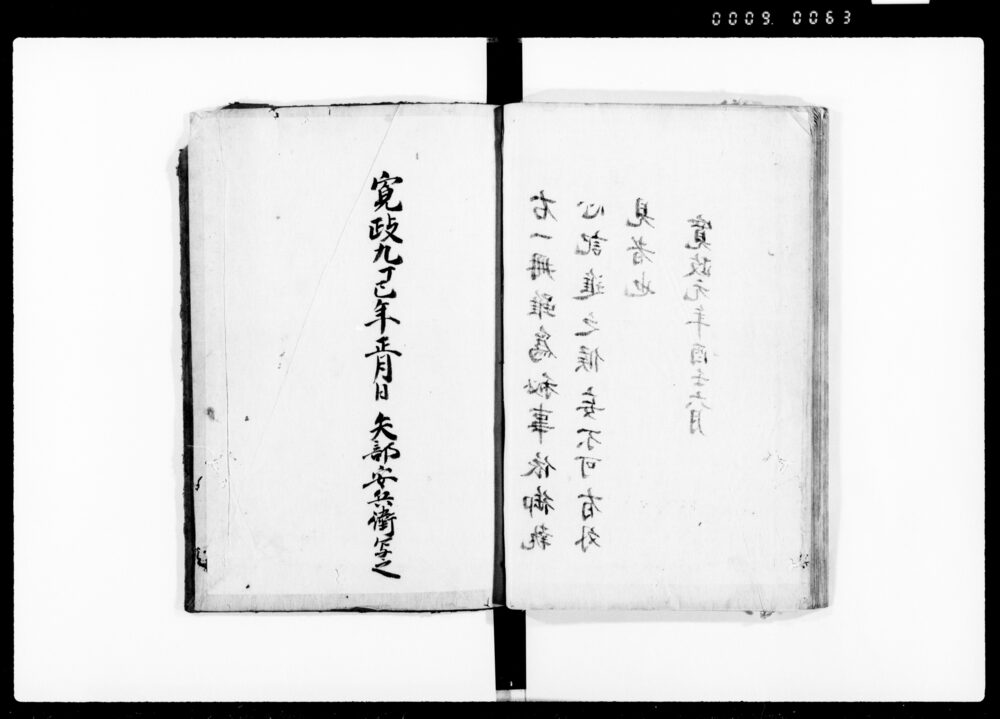 0009. 0063
右一冊雖為秘事依御執
心記進之候妄不可有外
見者也
寛政元年酉壬六月
寛政九丁巳年正月日 矢部安兵衛写之